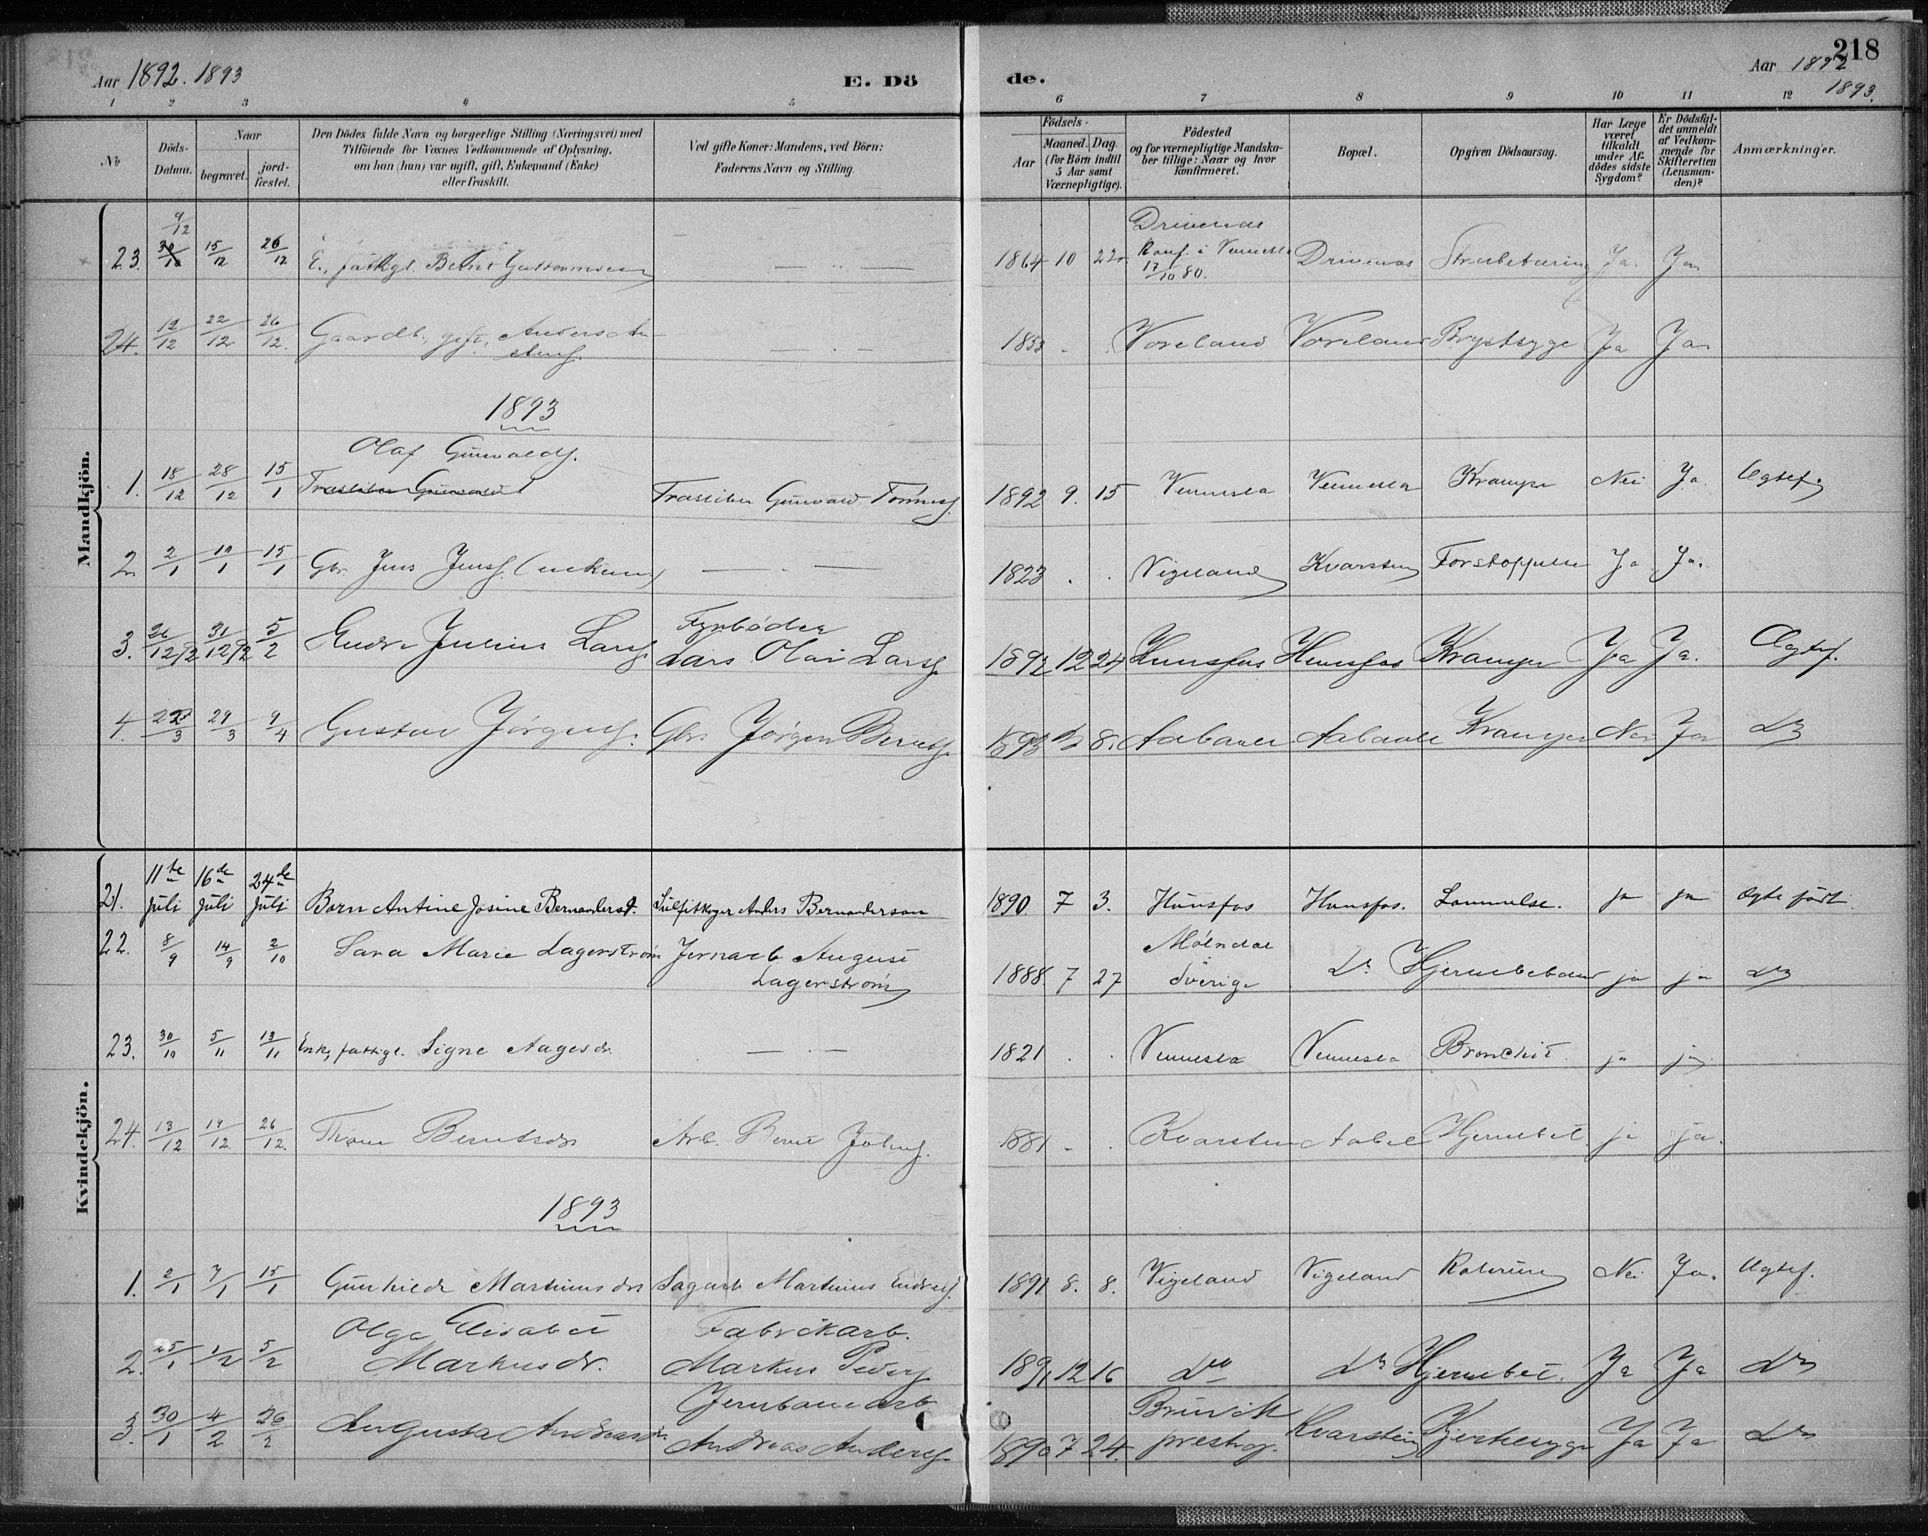 218
Aar 1892. 1893
E. Dö
de.
Aar 1892
1893.
1 2 3 4 5 6 7 8 9 10 11 12
No
Döds-
Datum.
Naar
begravet.
jord-
fæstet.
Den Dödes fulde Navn og borgerlige Stilling (Næringsvei) med
Tilföiende for Voxnes Vedkommende af Oplysning,
om han (hun) var ugift, gift, Enkemand (Enke)
eller fraskilt.
Ved gifte Koner: Mandens, ved Börn:
Faderens Navn og Stilling.
Aar
Födsels-
Maaned. Dag.
(for Börn indtil
5 Aar samt
Værnepligtige).
Födested
og for værnepligtige Mandska-
ber tillige: Naar og hvor
konfirmeret.
Bopæl.
Opgiven Dödsaarsag.
Har Læge
været
tilkaldt
under Af-
dödes sidste
Sygdom?
Er Dödsfal-
det anmeldt
af Vedkom-
mende for
Skifteretten
(Lensman-
den)?
Anmærkninger.
Mandkjön.
23. 9/12 15/12 26/12 E., fattigl. Bernt Guttormsen 1864 10 22 Drivenes
Konf. i Vennesla
17/10 80. Drivenes Strubetæring Ja. Ja
24. 19/12 22/12 26/12 Gaardb., gift, Anders 1833 Voreland Voreland Brystsyge Ja Ja
1893
Olaf Gunvalds.
1. 18/12 28/12 15/1 Trasiber Gunvald Tønnes. 1892 9. 15 Vennesla Vennesla Krampe Nei Ja. Ægtef.
2 2/1 10/1 15/1 Gbr. Jens Jens. (enkem) 1823 Vigeland Kvarstein Forstoppelse Ja Ja.
3. 26/12 92 31/12 92 5/2 Endre Julius Lars. Fyrbøder
Lars Olai Lars. 1892 12 24 Hunsfos Hunsfos Krampe Ja Ja. Ægtef.
4. 22/3 29/3 9/4 Gustav Jørgens. Gbr. Jørgen Bernts. 1893 8. Aabaale Aabaale Krampe Nei Ja do
Kvindekjön.
21. 11te Juli 16de Juli 24de Juli Barn Antine Josine Bernandersd. Sulfitkoger Anders Bernanderson 1890. 7 3. Hunsfos Hunsfos. Lammelse. ja ja Ægte født.
22. 8/9 14/9 2/10 Sara Marie Lagerstrøm Jernarb August
Lagerstrøm 1888 7 27 Mölndal
Sverige do Hjernebetænd ja ja do
23. 30/10 5/11 13/11 Enke, fattigl. Signe Aagesdr 1821 Vennesla Vennesla Bronchit. ja ja
24. 13/12 19/12 26/12 Trone Berntsdr Arb. Bernt Johns. 1881 Kvarstein Aabel Hjernebet. ja ja.
1893
1. 2/1 7/1 15/1 Gunhilde Martinusdr Sagarb Martinus Endres. 1891 8. 8. Vigeland Vigeland Nei Ja. Ægtef.
2. 25/1 1/2 5/2 Olga Elisabet
Markusdr. Fabrikarb.
Markus Peders. 1891 12 16 do do Hjernebet. Ja Ja do
3. 30/1 4/2 26/2 Augusta Andreasdr. Jernbanearb
Andreas Anders. 1890 7 24. Bruvik
prestegj. Kvarstein Hjertesyge Ja Ja do